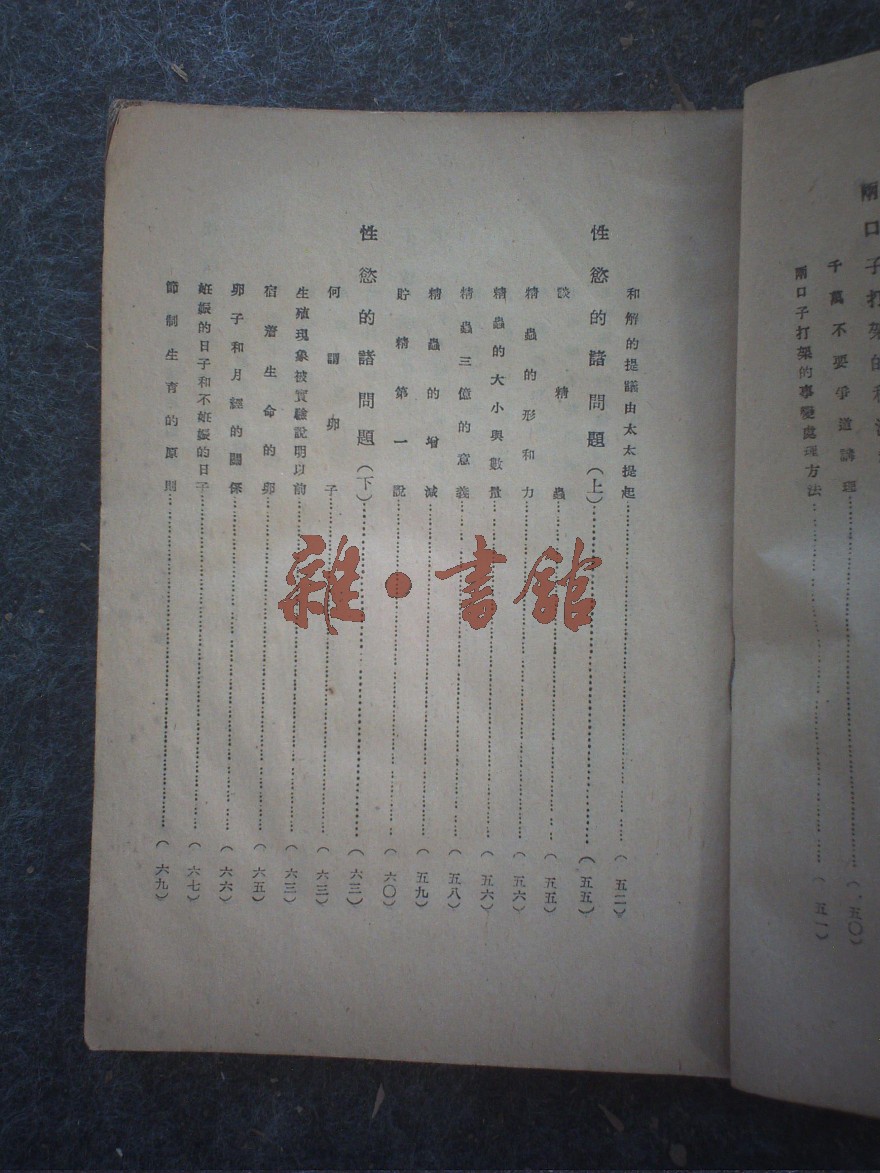 千萬不要爭道講理……（五〇）
兩口子打架的事變處理方法……（五一）
和解的提議由太太提起……（五二）
性慾的諸問題（上）……（五五）
談精蟲……（五五）
精蟲的形和力……（五六）
精蟲的大小與數量……（五六）
精蟲三億的意義……（五八）
精蟲的增減……（五九）
貯精第一說……（六〇）
性慾的諸問題（下）……（六三）
何謂卵子……（六三）
生殖現象被實驗說明以前……（六三）
宿着生命的卵……（六五）
卵子和月經的關係……（六六）
妊娠的日子和不妊娠的日子……（六七）
節制生育的原則……（六九）
雜·書館